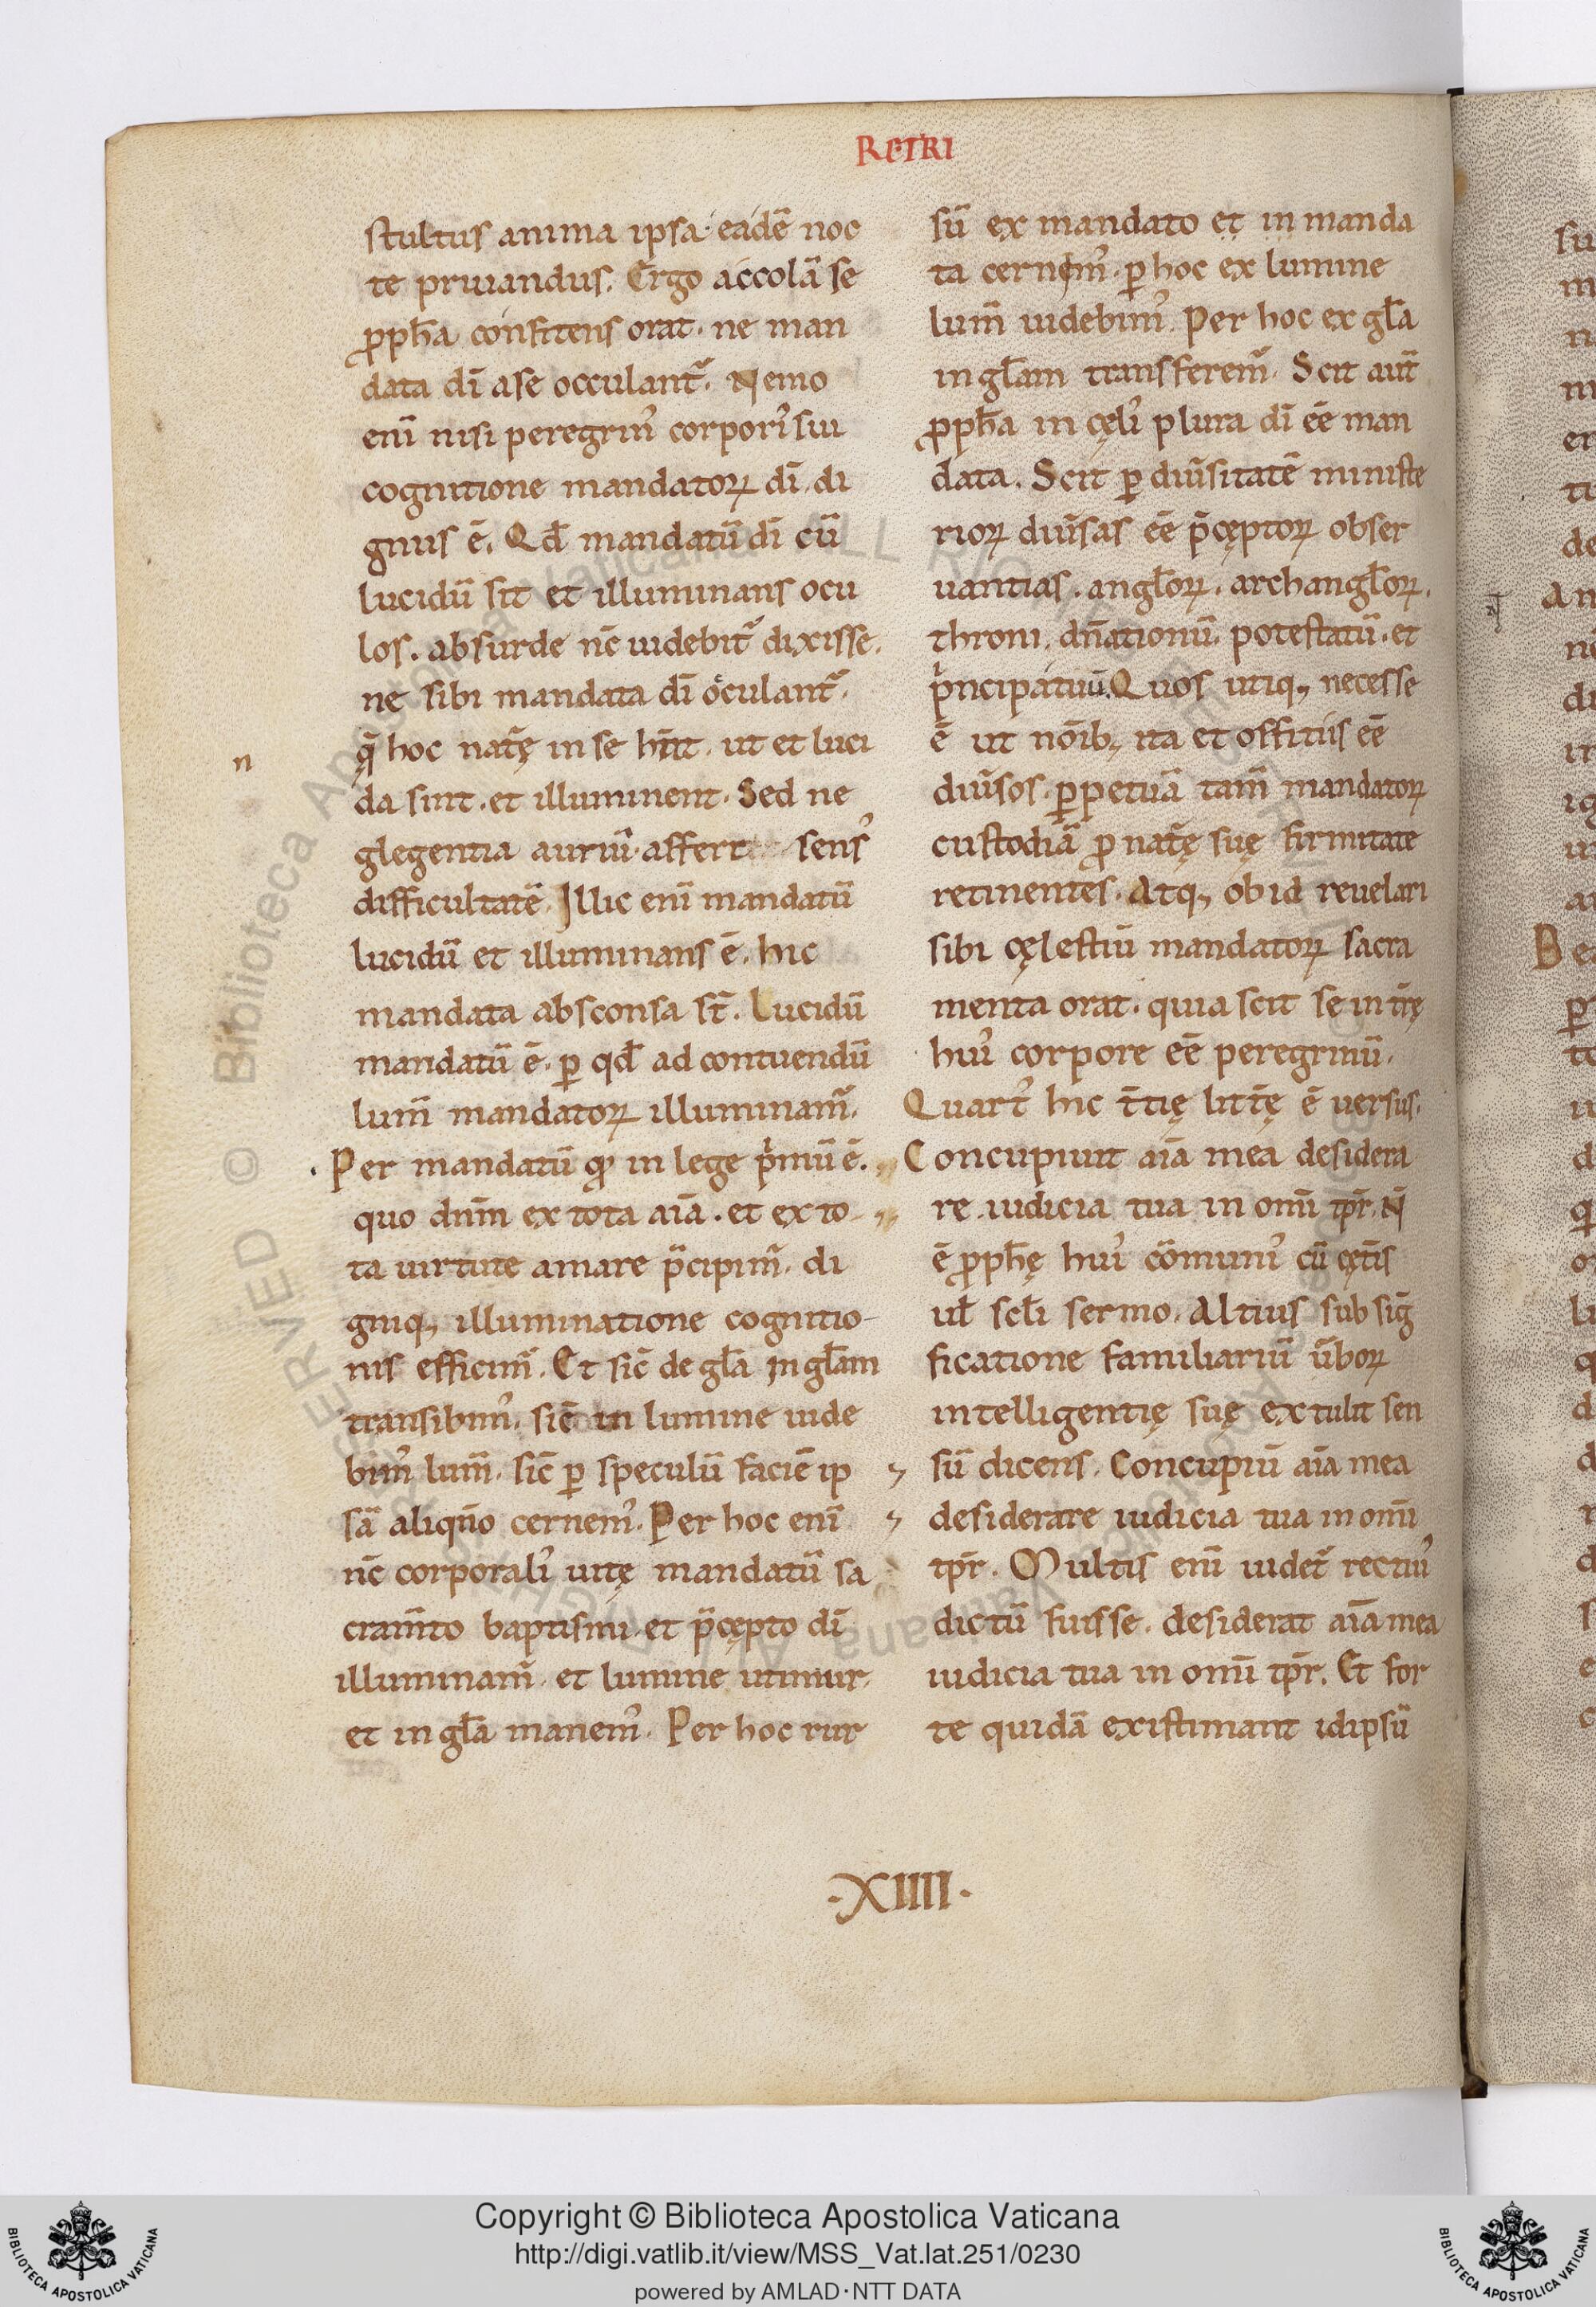 RETRI
stultus anima ipsa· eadē noc
te priuandus. Ergo accolā se
ꝓpħa confitens orat. ne man
data dī a se occulant᷑. Nemo
eni᷑ nisi peregrinꝰ corporiꝰ sui
cognitione mandatoꝝ dī di
gnus ē. Qđ mandatū dī cū
lucidū sit et illuminans ocu
los. absurde nc̄ uidebit᷑ dixisse.
ne sibi mandata dī occulant᷑.
n
q̨̄ hoc nat᷑ę in se hn̄t. ut et luci
da sint. et illuminent. Sed ne
glegentia auriū affert sensꝰ
difficultatē. Illic eni᷑ mandatū
lucidū et illuminans ē. hic
mandata absconsa st̄. Lucidū
mandatū ē. ꝑ qđ ad contuendū
lum̄ mandatoꝝ illuminam᷑.
Per mandatū qꝰ in lege pͥmū ē.
quo dn̄m ex tota aīa. et ex to
ta uirtute amare p̄cipim᷑. di
gniq; illuminatione cognitio-
nis efficim᷑. Et sic̄ de gl̄a in gl̄am
transibimꝰ. sic̄ in lumine uide
bimꝰ lum̄. sic̄ ꝑ speculū faciē ip
sā aliqn̄o cernemꝰ. Per hoc eni᷑
nc̄ corporaliꝰ uitę mandatū sa
cram̄to baptismi et p̄cępto dī
illuminam᷑. et lumine utimur.
et in gl̄a manemꝰ. Per hoc rur
sū ex mandato et in manda
ta cernemꝰ. ꝑ hoc ex lumine
lum̄ uidebimꝰ. Per hoc ex gl̄a
in gl̄am transferem᷑. Scit aut̄
ꝓpħa in cęliꝰ plura dī eē man
data. Scit ꝑ diūsitatē ministe
rioꝝ diūsas eē p̄cęptoꝝ obser
uantias. angl̄oꝝ. archangl̄oꝝ.
throni. dn̄ationū. potestatū. et
pͥncipatuū. Quos utiq; necesse
ē ut noīb; ita et offitiis eē
diūsos. ꝑpetuā tam̄ mandatoꝝ
custodiā ꝓ nat᷑ę suę firmitate
retinentes. Atq; ob id reuelari
sibi cęlestiū mandatoꝝ sacra
menta orat. quia scit se in tr̄ę
huiꝰ corpore eē peregrinū.
Quartꝰ hic t̄tię litt̄ę ē uersus.
Concupiuit aīa mea desidera
re iudicia tua in omī tp̄r. N̄
ē ꝓpħę huiꝰ cōmuniꝰ cū cęt̄is
ul̄ scl̄i sermo. Altius sub sig̅
ficatione familiariū ūboꝝ
intelligentię suę extulit sen
sū dicens. Concupiū aīa mea
desiderare iudicia tua in omī
tp̄r. Multis eni᷑ uidet᷑ rectiuꝰ
dictū fuisse. desiderat aīa mea
iudicia tua in omī tp̄r. Et for
te quidā existimant idipsū
·XIIII·
Copyright © Biblioteca Apostolica Vaticana
http://digi.vatlib.it/view/MSS_Vat.lat.251/0230
powered by AMLAD·NTT DATA